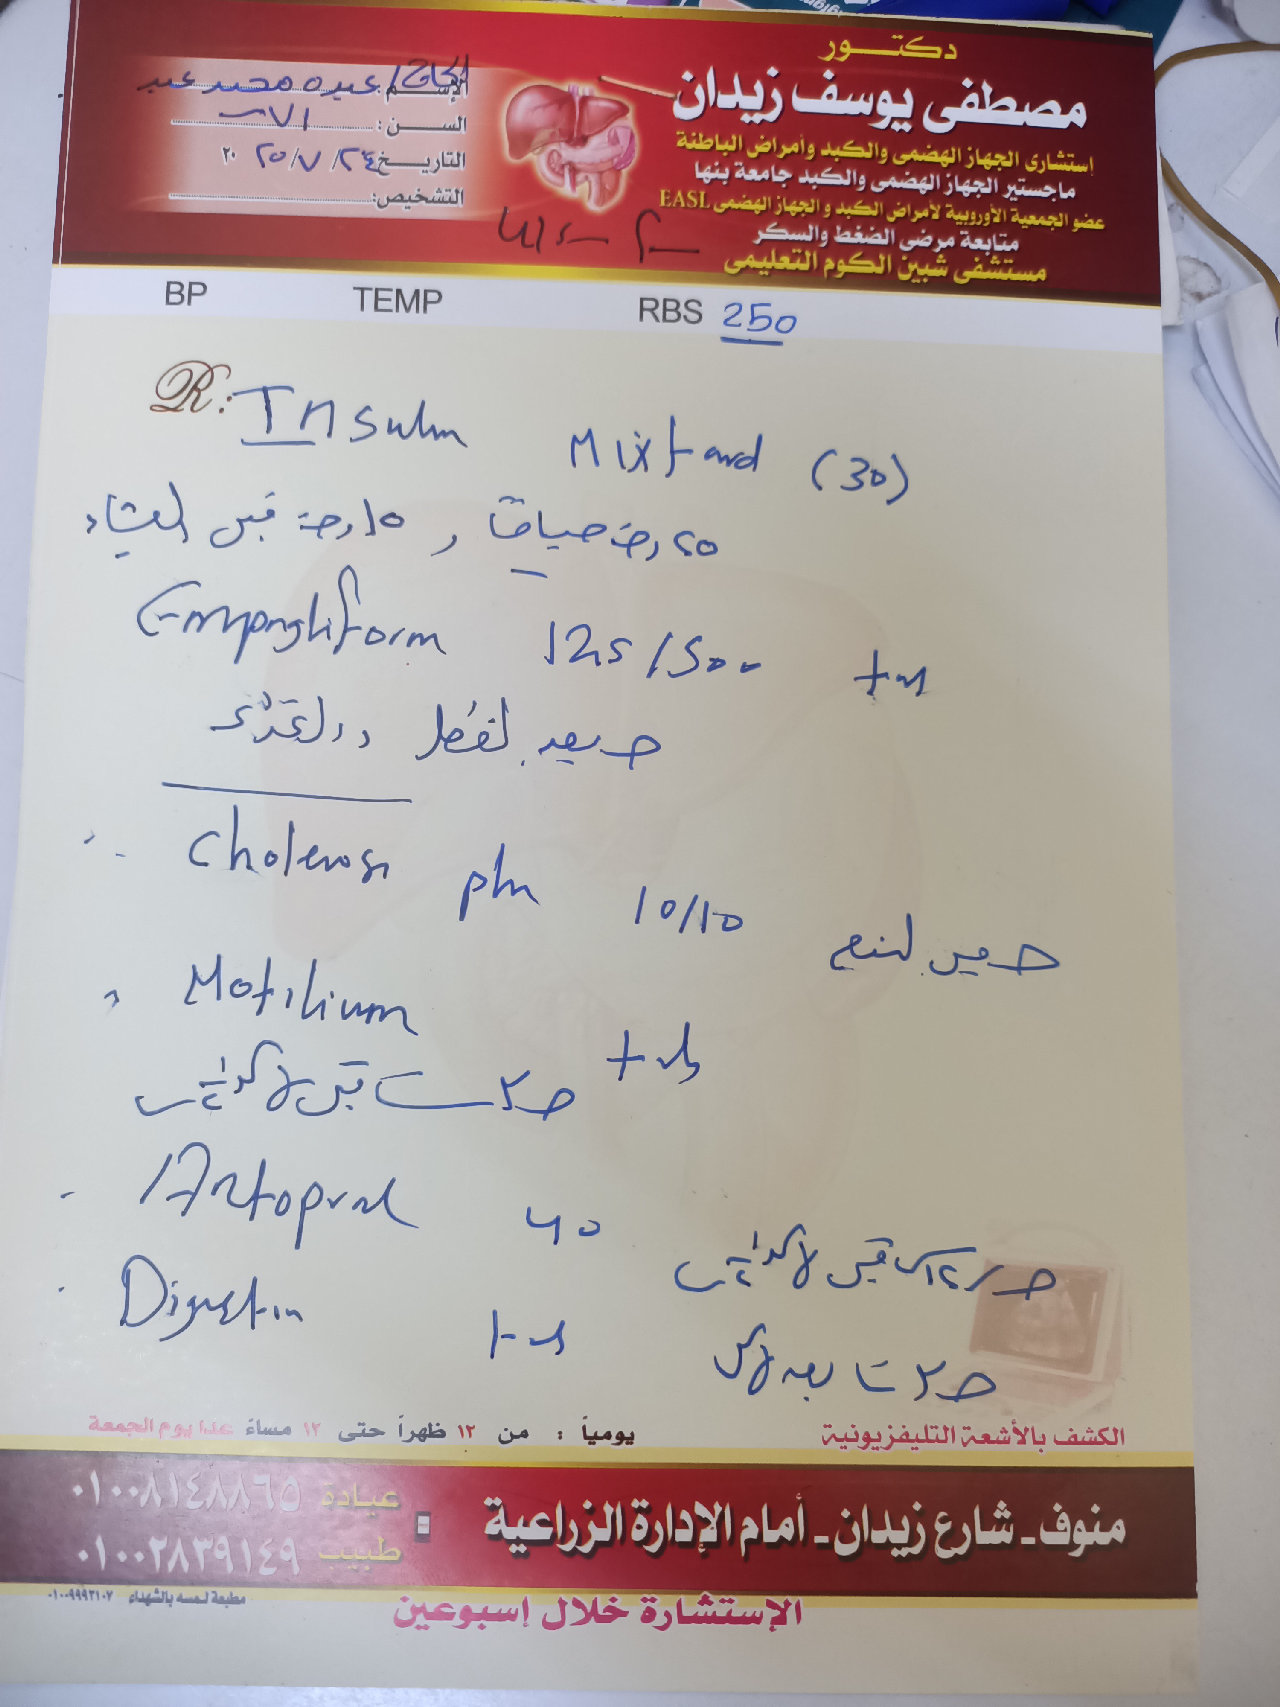 دكتور
مصطفى يوسف زيدان
استشارى الجهاز الهضمى والكبد وأمراض الباطنة
ماجستير الجهاز الهضمى والكبد جامعة بنها
عضو الجمعية الأوروبية لأمراض الكبد و الجهاز الهضمى EASL
متابعة مرضى الضغط والسكر
مستشفى شبين الكوم التعليمى
الإسم: الحاج/ عبده محمد عبد
السن:
التاريخ ٢٤/٧/٢٥ ٢٠
التشخيص:
BP TEMP RBS 250
R: Insulin Mixtard (30)
٢٥ درجة صباحًا و ١٥ درجة قبل العشاء
Empagliform 12.5/500
بعد الفطار
Cholerose plus 10/10
Motilium
قبل الأكل
Antopral 40
قبل الأكل
Digestin
بعد الأكل
الكشف بالأشعة التليفزيونية
يومياً : من ١٢ ظهراً حتى ١٢ مساءً عدا يوم الجمعة
منوف - شارع زيدان - أمام الإدارة الزراعية
عيادة ٠١٠٠٨١٤٨٨٦٥
طبيب ٠١٠٠٢٨٣٩١٤٩
الإستشارة خلال إسبوعين
مطبعة لمسه بالشهداء